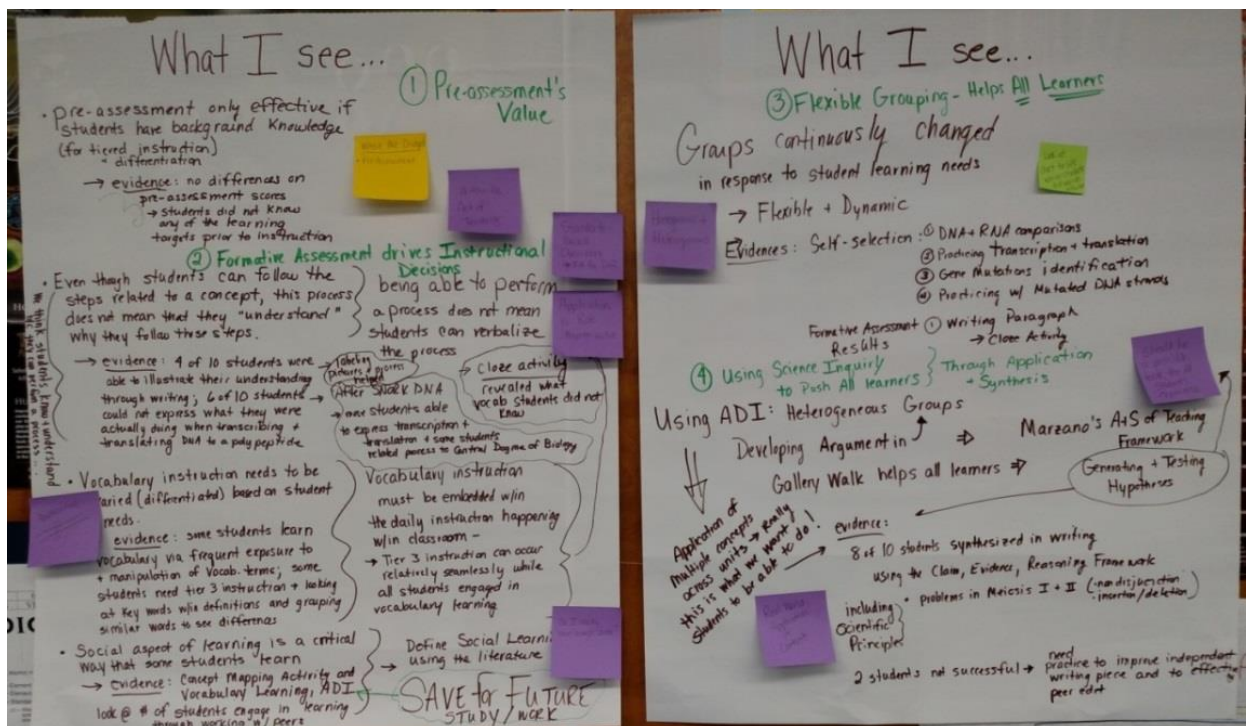 What I see...
① Pre-assessment's
Value
• pre-assessment only effective if
students have background knowledge
(for tiered instruction)
= differentiation
→ evidence: no differences on
pre-assessment scores
→ students did not know
any of the learning
targets prior to instruction
② Formative Assessment drives Instructional
Decisions
• Even though students can follow the
steps related to a concept, this process
does not mean that they "understand"
why they follow these steps.
being able to perform
a process does not mean
students can verbalize
the process
We think students know + understand
→ evidence: 4 of 10 students were
able to illustrate their understanding
through writing; 6 of 10 students →
could not express what they were
actually doing when transcribing +
translating DNA to a polypeptide
→ labeling
pictures + process
helped
After SNORK DNA
→ one students able
to express transcription +
translation + some students
related process to Central Dogma of Biology
→ Cloze activity
revealed what
vocab students did not
know
• Vocabulary instruction needs to be
varied (differentiated) based on student
needs.
evidence: some students learn
vocabulary via frequent exposure to
+ manipulation of vocab. terms; some
students need tier 3 instruction + looking
at key words w/in definitions and grouping
similar words to see differences
Vocabulary instruction
must be embedded w/in
the daily instruction happening
w/in classroom –
→ Tier 3 instruction can occur
relatively seamlessly while
all students engaged in
vocabulary learning
• Social aspect of learning is a critical
way that some students learn
→ evidence: Concept Mapping Activity and
Vocabulary Learning, ADI
look @ # of students engage in learning
through working w/ peers
→ Define Social Learning
using the literature
SAVE for FUTURE
STUDY/WORK
What I see...
③ Flexible Grouping - Helps All Learners
Groups continuously changed
in response to student learning needs
→ Flexible + Dynamic
Evidences: Self-selection: ① DNA + RNA comparisons
② Practicing Transcription + translation
③ Gene Mutations identification
④ Practicing w/ Mutated DNA strands
Formative Assessment ① Writing Paragraph
Results → Cloze Activity
④ Using Science Inquiry
to Push All learners
Through Application
+ Synthesis
Using ADI: Heterogeneous Groups
Developing Argument in
⇒ Marzano's A+S of Teaching
Framework
Gallery Walk helps all learners ⇒
Generating + Testing
Hypotheses
Application of
multiple concepts
across units → Really
this is what we want
students to be able to do!
evidence:
8 of 10 students synthesized in writing
using the Claim, Evidence, Reasoning Framework
including
Scientific
Principles
• problems in Meiosis I + II (·nondisjunction
·insertion/deletion)
2 students not successful → need
practice to improve independent
writing piece and to effectively
peer edit